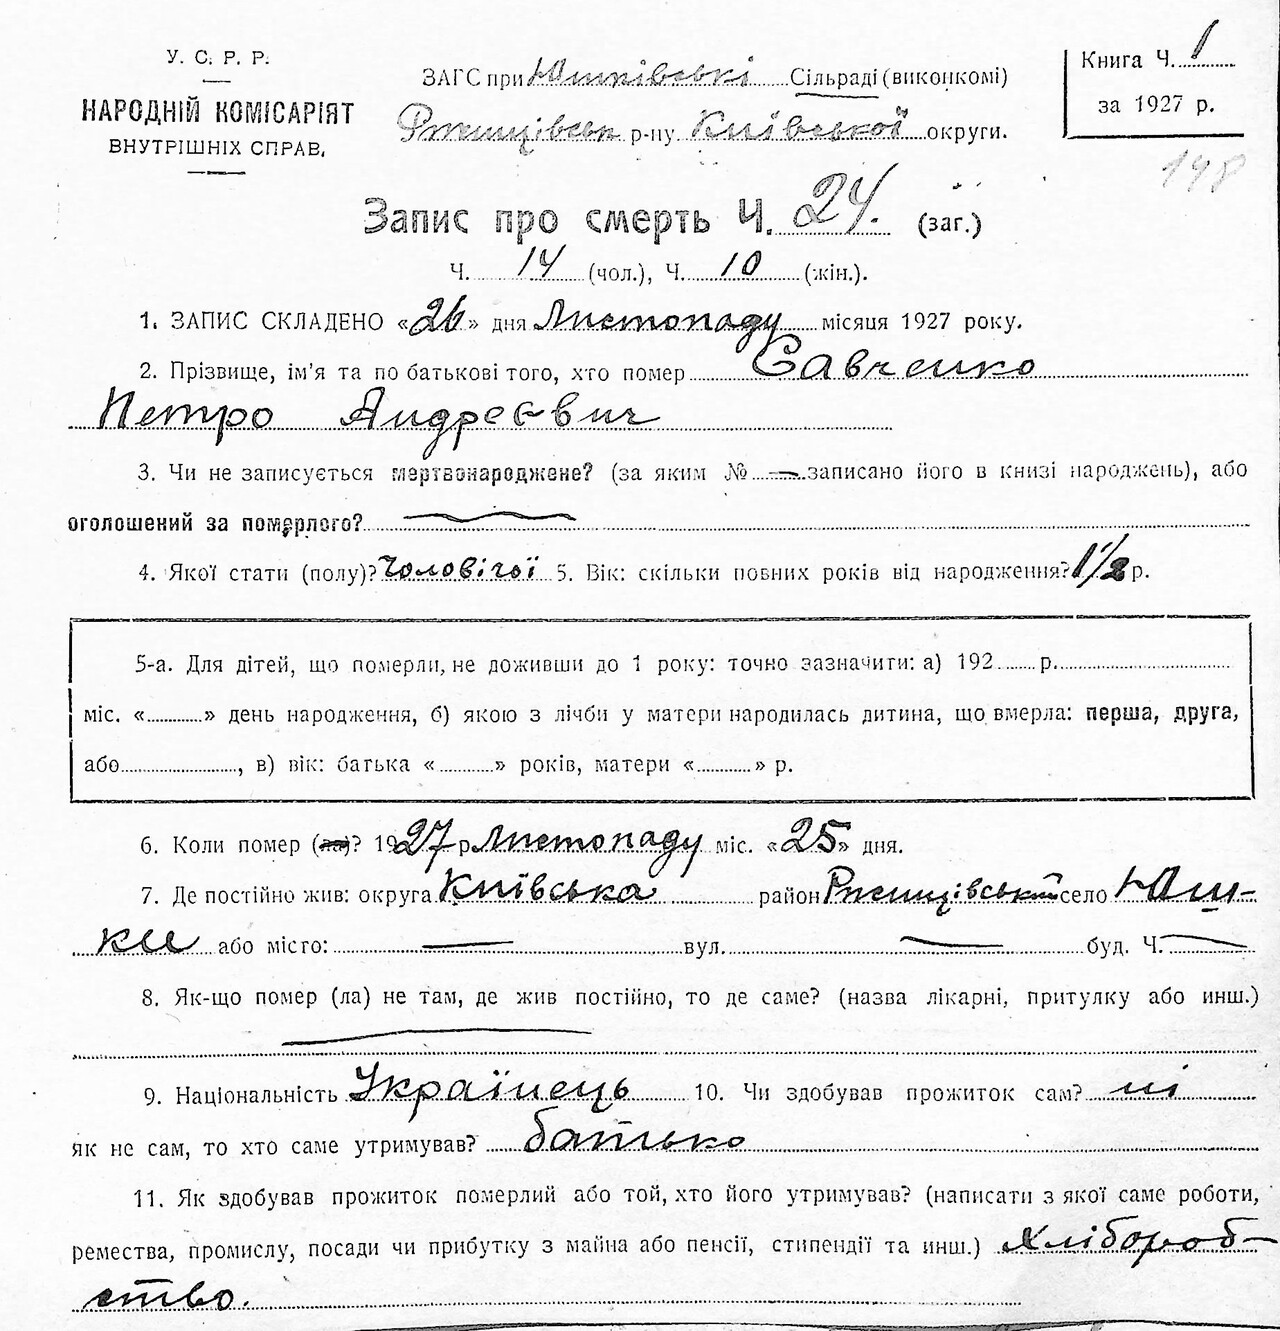 У. С. Р. Р.
НАРОДНІЙ КОМІСАРІЯТ
ВНУТРІШНІХ СПРАВ.
ЗАГС при Юшківські Сільраді (виконкомі)
Ржищівськ р-ну Київської округи.
Книга Ч. 1
за 1927 р.
148
Запис про смерть Ч. 24. (заг.)
Ч. 14 (чол.), Ч. 10 (жін.).
1. ЗАПИС СКЛАДЕНО «26» дня Листопаду місяця 1927 року.
2. Прізвище, ім'я та по батькові того, хто помер Савченко
Петро Андреєвич
3. Чи не записується мертвонароджене? (за яким № — записано його в книзі народжень), або
оголошений за померлого?
4. Якої стати (полу)? Чоловічої 5. Вік: скільки повних років від народження? 1 1/2 р.
5-а. Для дітей, що померли, не доживши до 1 року: точно зазначити: а) 192 р.
міс. « » день народження, б) якою з лічби у матери народилась дитина, що вмерла: перша, друга,
або , в) вік: батька « » років, матери « » р.
6. Коли помер (ла)? 1927 р Листопаду міс. «25» дня.
7. Де постійно жив: округа Київська район Ржищівський село Юш-
ки або місто: — вул. — буд. Ч. —
8. Як-що помер (ла) не там, де жив постійно, то де саме? (назва лікарні, притулку або инш.)
9. Національність Українець 10. Чи здобував прожиток сам? ні
як не сам, то хто саме утримував? батько
11. Як здобував прожиток померлий або той, хто його утримував? (написати з якої саме роботи,
ремества, промислу, посади чи прибутку з майна або пенсії, стипендії та инш.) Хлібороб-
ство.